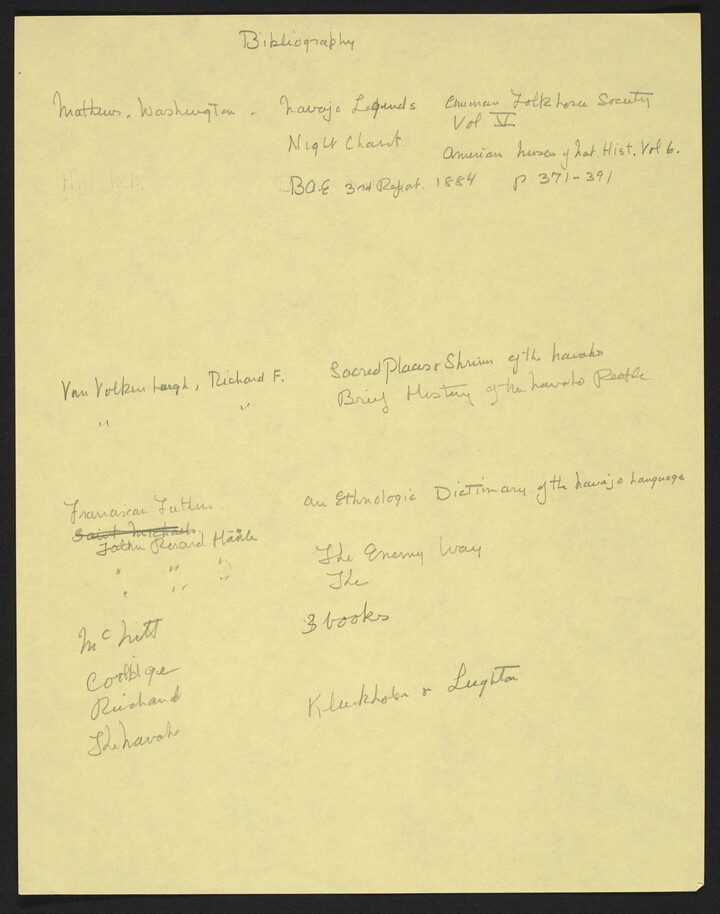 Bibliography
Mathews, Washington. Navajo Legends American Folklore Society
Vol V
Night Chant American Museum of Nat. Hist. Vol 6.
B.A.E. 3rd Report. 1884 p 371-391
Van Valkenburgh, Richard F. Sacred Places & Shrines of the Navaho
" " Brief History of the Navaho People
Franciscan Fathers An Ethnologic Dictionary of the Navajo Language
Saint Michaels
Father Berard Haile The Enemy Way
" " " The
" " "
McNitt 3 books
Coolidge
Richard Kluckhohn & Leighton
The Navaho